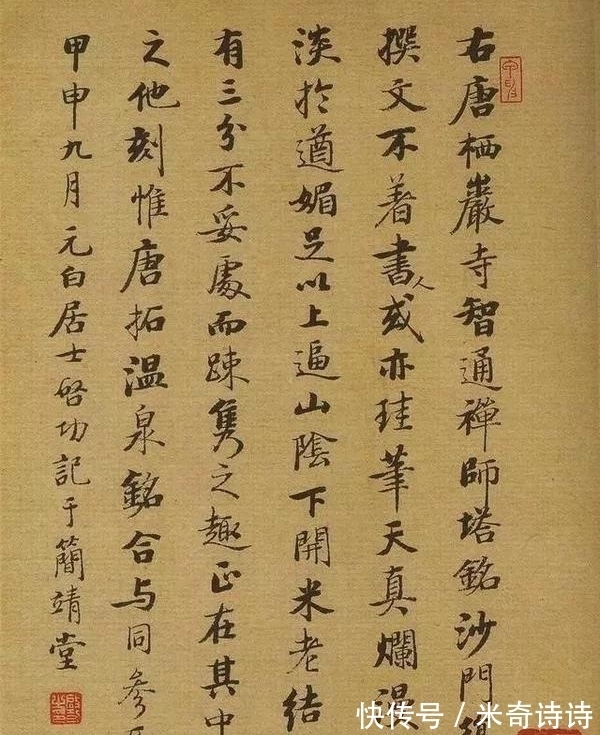 右唐栖巖寺智通禪師塔銘沙門復
撰文不著書人或亦珪筆天真爛漫
淡於遒媚足以上逼山陰下開米老結
有三分不妥處而踈雋之趣正在其中
之他刻惟唐拓溫泉銘合与同參
甲申九月元白居士啓功記于簡靖堂
快传号／米奇诗诗